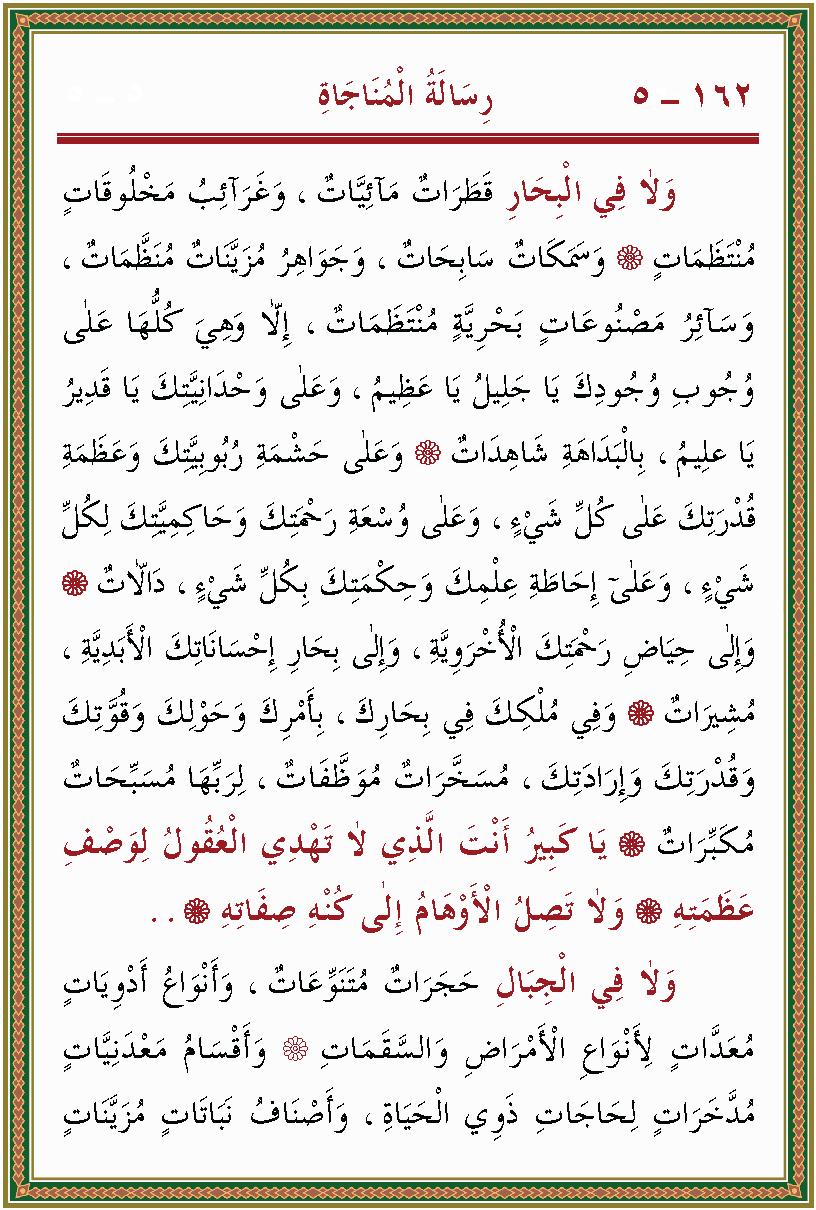 ١٦٢ ـ ٥ رِسَالَةُ الْمُنَاجَاةِ
وَلَا فِي الْبِحَارِ قَطَرَاتٌ مَآئِيَّاتٌ ، وَغَرَآئِبُ مَخْلُوقَاتٍ
مُنْتَظَمَاتٍ ۞ وَسَمَكَاتٌ سَابِحَاتٌ ، وَجَوَاهِرُ مُزَيَّنَاتٌ مُنَظَّمَاتٌ ،
وَسَآئِرُ مَصْنُوعَاتٍ بَحْرِيَّةٍ مُنْتَظَمَاتٌ ، إِلَّا وَهِيَ كُلُّهَا عَلٰى
وُجُوبِ وُجُودِكَ يَا جَلِيلُ يَا عَظِيمُ ، وَعَلٰى وَحْدَانِيَّتِكَ يَا قَدِيرُ
يَا عَلِيمُ ، بِالْبَدَاهَةِ شَاهِدَاتٌ ۞ وَعَلٰى حَشْمَةِ رُبُوبِيَّتِكَ وَعَظَمَةِ
قُدْرَتِكَ عَلٰى كُلِّ شَيْءٍ ، وَعَلٰى وُسْعَةِ رَحْمَتِكَ وَحَاكِمِيَّتِكَ لِكُلِّ
شَيْءٍ ، وَعَلٰىٓ إِحَاطَةِ عِلْمِكَ وَحِكْمَتِكَ بِكُلِّ شَيْءٍ ، دَالَّاتٌ ۞
وَإِلٰى حِيَاضِ رَحْمَتِكَ الْأُخْرَوِيَّةِ ، وَإِلٰى بِحَارِ إِحْسَانَاتِكَ الْأَبَدِيَّةِ ،
مُشِيرَاتٌ ۞ وَفِي مُلْكِكَ فِي بِحَارِكَ ، بِأَمْرِكَ وَحَوْلِكَ وَقُوَّتِكَ
وَقُدْرَتِكَ وَإِرَادَتِكَ ، مُسَخَّرَاتٌ مُوَظَّفَاتٌ ، لِرَبِّهَا مُسَبِّحَاتٌ
مُكَبِّرَاتٌ ۞ يَا كَبِيرُ أَنْتَ الَّذِي لَا تَهْدِي الْعُقُولُ لِوَصْفِ
عَظَمَتِهِ ۞ وَلَا تَصِلُ الْأَوْهَامُ إِلٰى كُنْهِ صِفَاتِهِ ۞ . .
وَلَا فِي الْجِبَالِ حَجَرَاتٌ مُتَنَوِّعَاتٌ ، وَأَنْوَاعُ أَدْوِيَاتٍ
مُعَدَّاتٍ لِأَنْوَاعِ الْأَمْرَاضِ وَالسَّقَمَاتِ ۞ وَأَقْسَامُ مَعْدَنِيَّاتٍ
مُدَّخَرَاتٍ لِحَاجَاتِ ذَوِي الْحَيَاةِ ، وَأَصْنَافُ نَبَاتَاتٍ مُزَيَّنَاتٍ